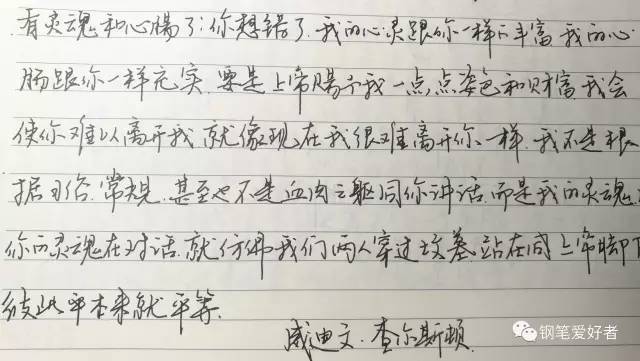 有灵魂和心肠了:你想错了.我的心灵跟你一样的丰富.我的心
肠跟你一样充实.要是上帝赐予我一点点姿色和财富.我会
使你难以离开我.就像现在我很难离开你一样.我不是根
据习俗.常规.甚至也不是血肉之躯同你讲话.而是我的灵魂.
你的灵魂在对话.就仿佛我们两人穿过坟墓站在同上帝脚下
彼此平本来就平等.
威迪文.查尔斯顿.
钢笔爱好者